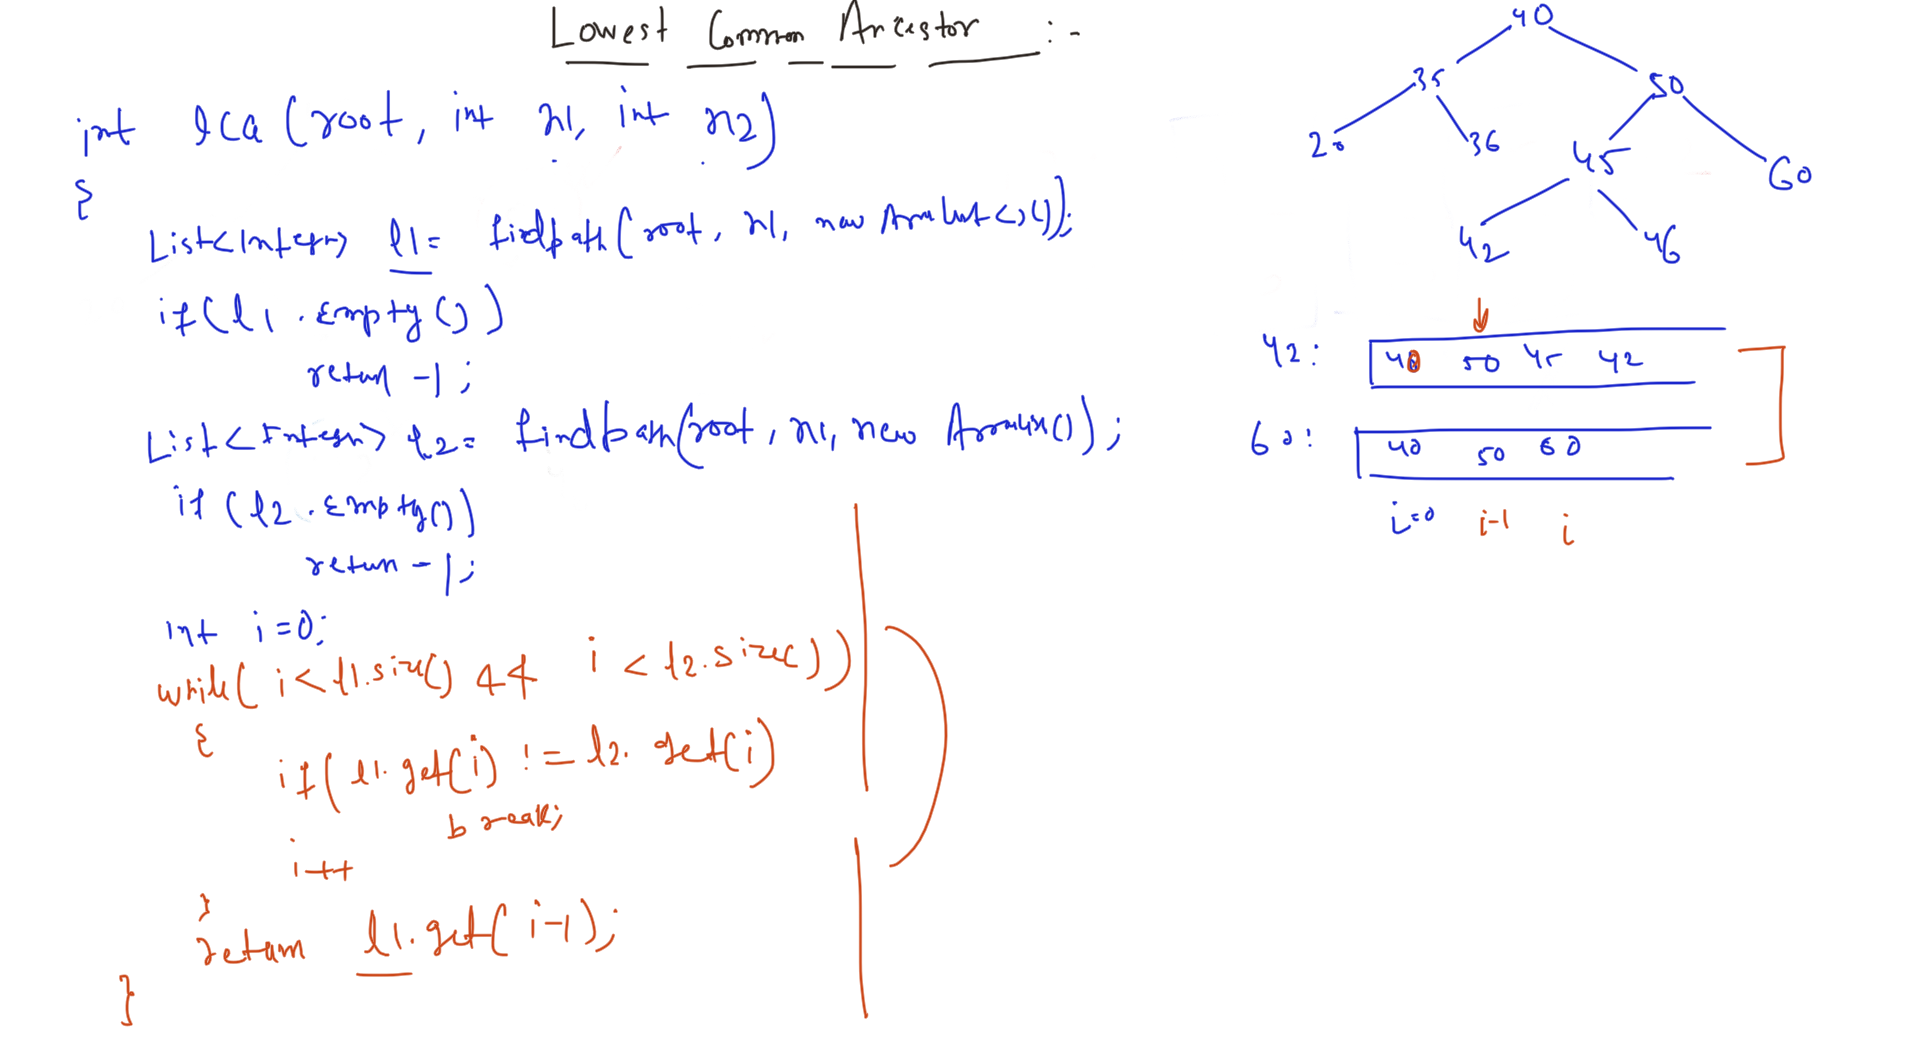 Lowest Common Ancestor :-
int lca (root, int n1, int n2)
{
List<Integer> l1= findpath(root, n1, new ArrayList<>());
if(l1.empty())
return -1;
List<Integer> l2= findpath(root, n1, new ArrayList());
if(l2.empty())
return -1;
int i=0;
while(i<l1.size() && i<l2.size())
{
if(l1.get(i) != l2.get(i)
break;
i++
}
return l1.get(i-1);
}
40
35 50
20 36 45 60
42 46
42: 40 50 45 42
60: 40 50 60
i=0 i-1 i